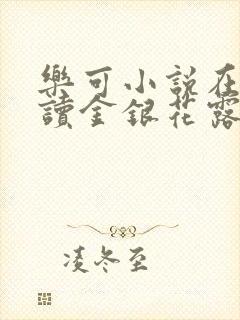 樂可小說在
讀金銀花露
凌冬至